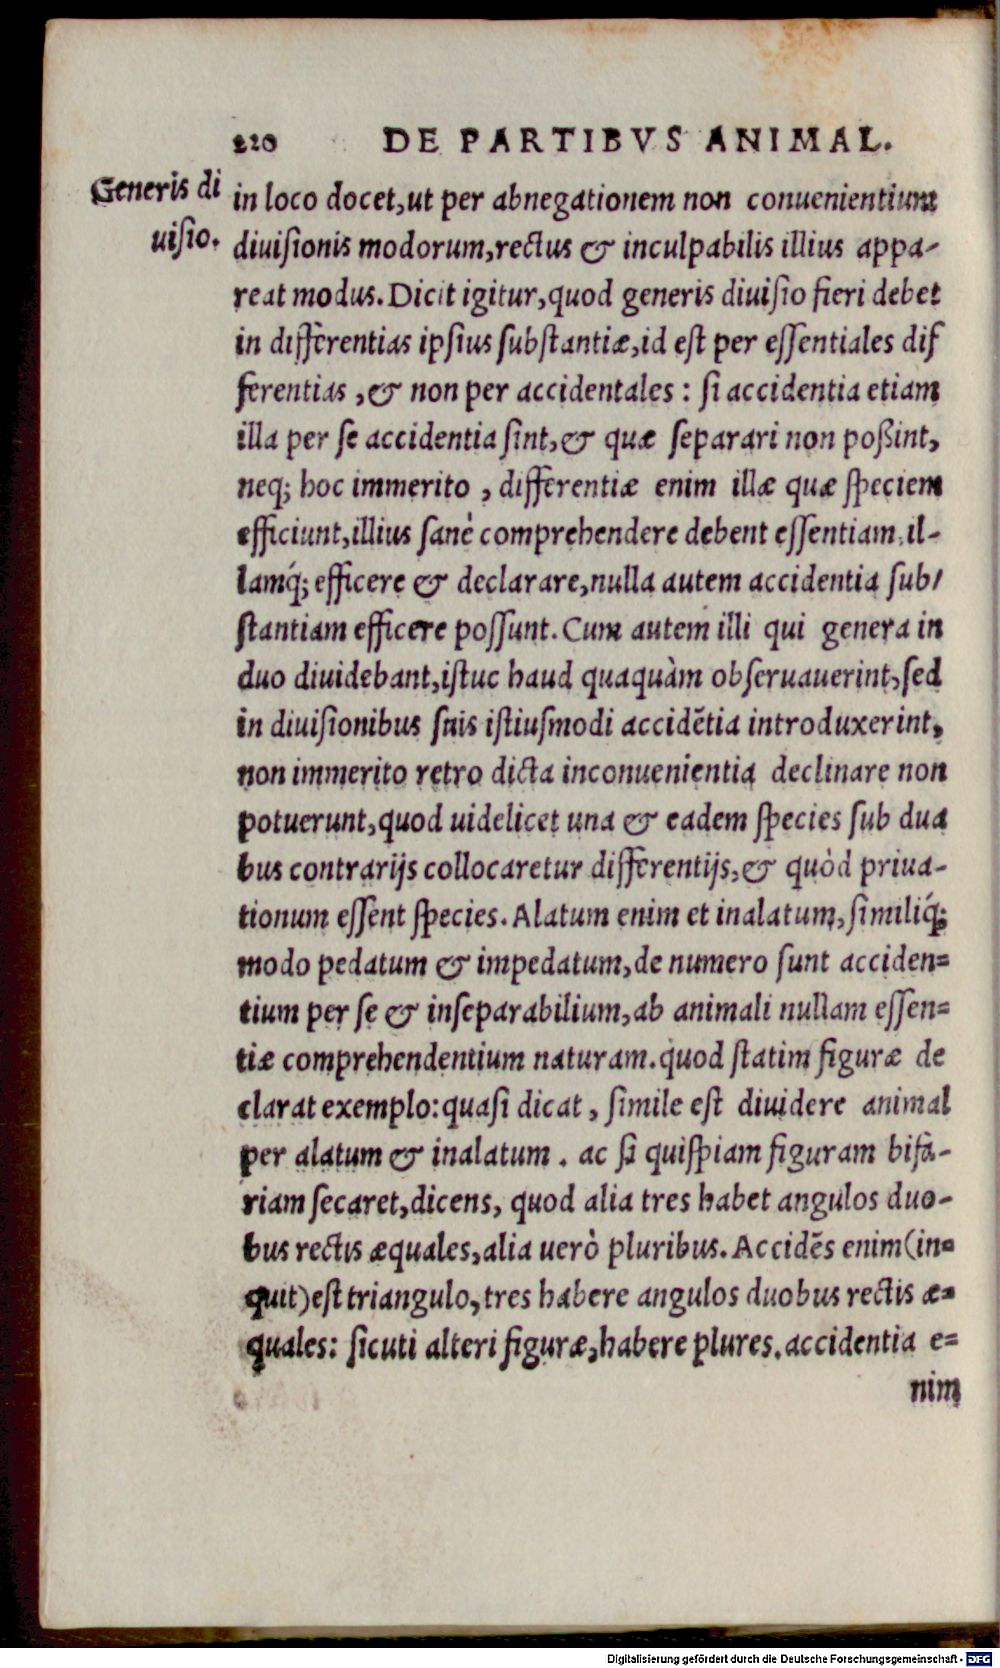 220 DE PARTIBVS ANIMAL.
Generis di
uisio.
in loco docet, ut per abnegationem non conuenientium
diuisionis modorum, rectus & inculpabilis illius appa-
reat modus. Dicit igitur, quod generis diuisio fieri debet
in differentias ipsius substantiæ, id est per essentiales dif
ferentias, & non per accidentales: si accidentia etiam
illa per se accidentia sint, & quæ separari non poßint,
neq; hoc immerito, differentiæ enim illæ quæ speciem
efficiunt, illius sanè comprehendere debent essentiam, il-
lamq́; efficere & declarare, nulla autem accidentia sub/
stantiam efficere possunt. Cum autem illi qui genera in
duo diuidebant, istuc haud quaquàm obseruauerint, sed
in diuisionibus suis istiusmodi accidẽtia introduxerint,
non immerito retro dicta inconuenientia declinare non
potuerunt, quod uidelicet una & eadem species sub dua
bus contrarijs collocaretur differentijs, & quòd priua-
tionum essent species. Alatum enim et inalatum, similiq́;
modo pedatum & impedatum, de numero sunt acciden=
tium per se & inseparabilium, ab animali nullam essen=
tiæ comprehendentium naturam. quod statim figuræ de
clarat exemplo: quasi dicat, simile est diuidere animal
per alatum & inalatum. ac si quispiam figuram bifa-
riam secaret, dicens, quod alia tres habet angulos duo-
bus rectis æquales, alia uerò pluribus. Accidẽs enim (in=
quit) est triangulo, tres habere angulos duobus rectis æ=
quales: sicuti alteri figuræ, habere plures. accidentia e=
nim
Digitalisierung gefördert durch die Deutsche Forschungsgemeinschaft - DFG